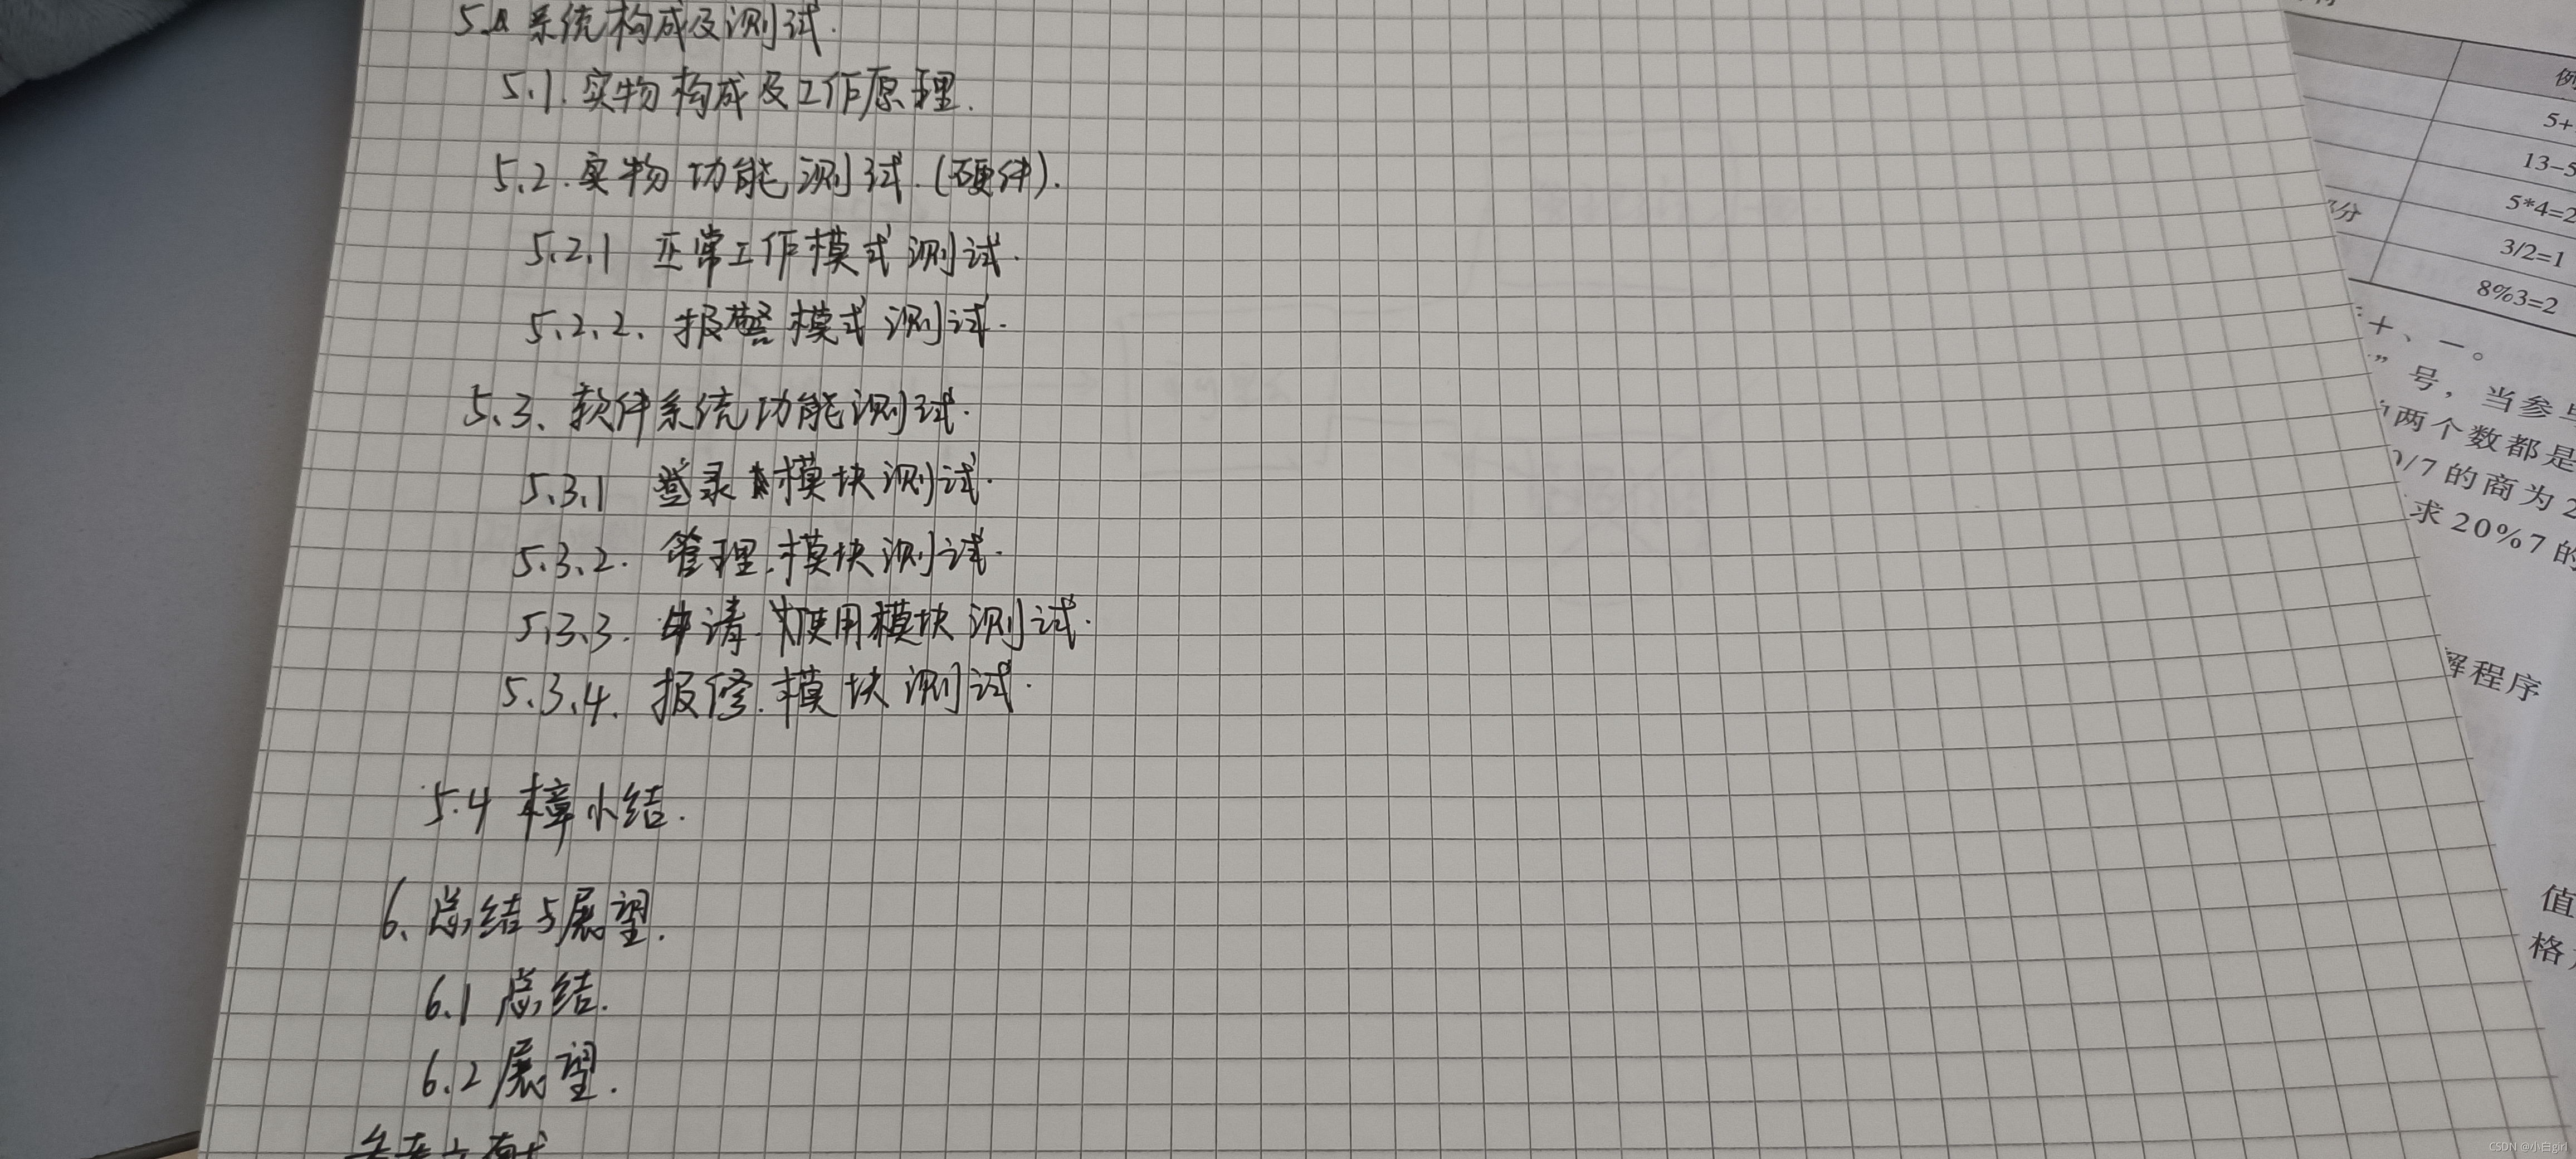 5. 系统构成及测试.
5.1. 实物构成及工作原理.
5.2. 实物功能测试.(硬件).
5.2.1 正常工作模式测试.
5.2.2. 报警模式测试.
5.3. 软件系统功能测试.
5.3.1 登录模块测试.
5.3.2. 管理.模块测试.
5.3.3. 申请.使用模块测试.
5.3.4. 报修.模块测试.
5.4 本章小结.
6. 总结与展望.
6.1 总结.
6.2 展望.
参考文献
例
5+
13-5
部分
5*4=2
3/2=1
8%3=2
十、一。
”号,当参与
两个数都是
0/7的商为2
求20%7的
解程序
值
格
CSDN @小白girl